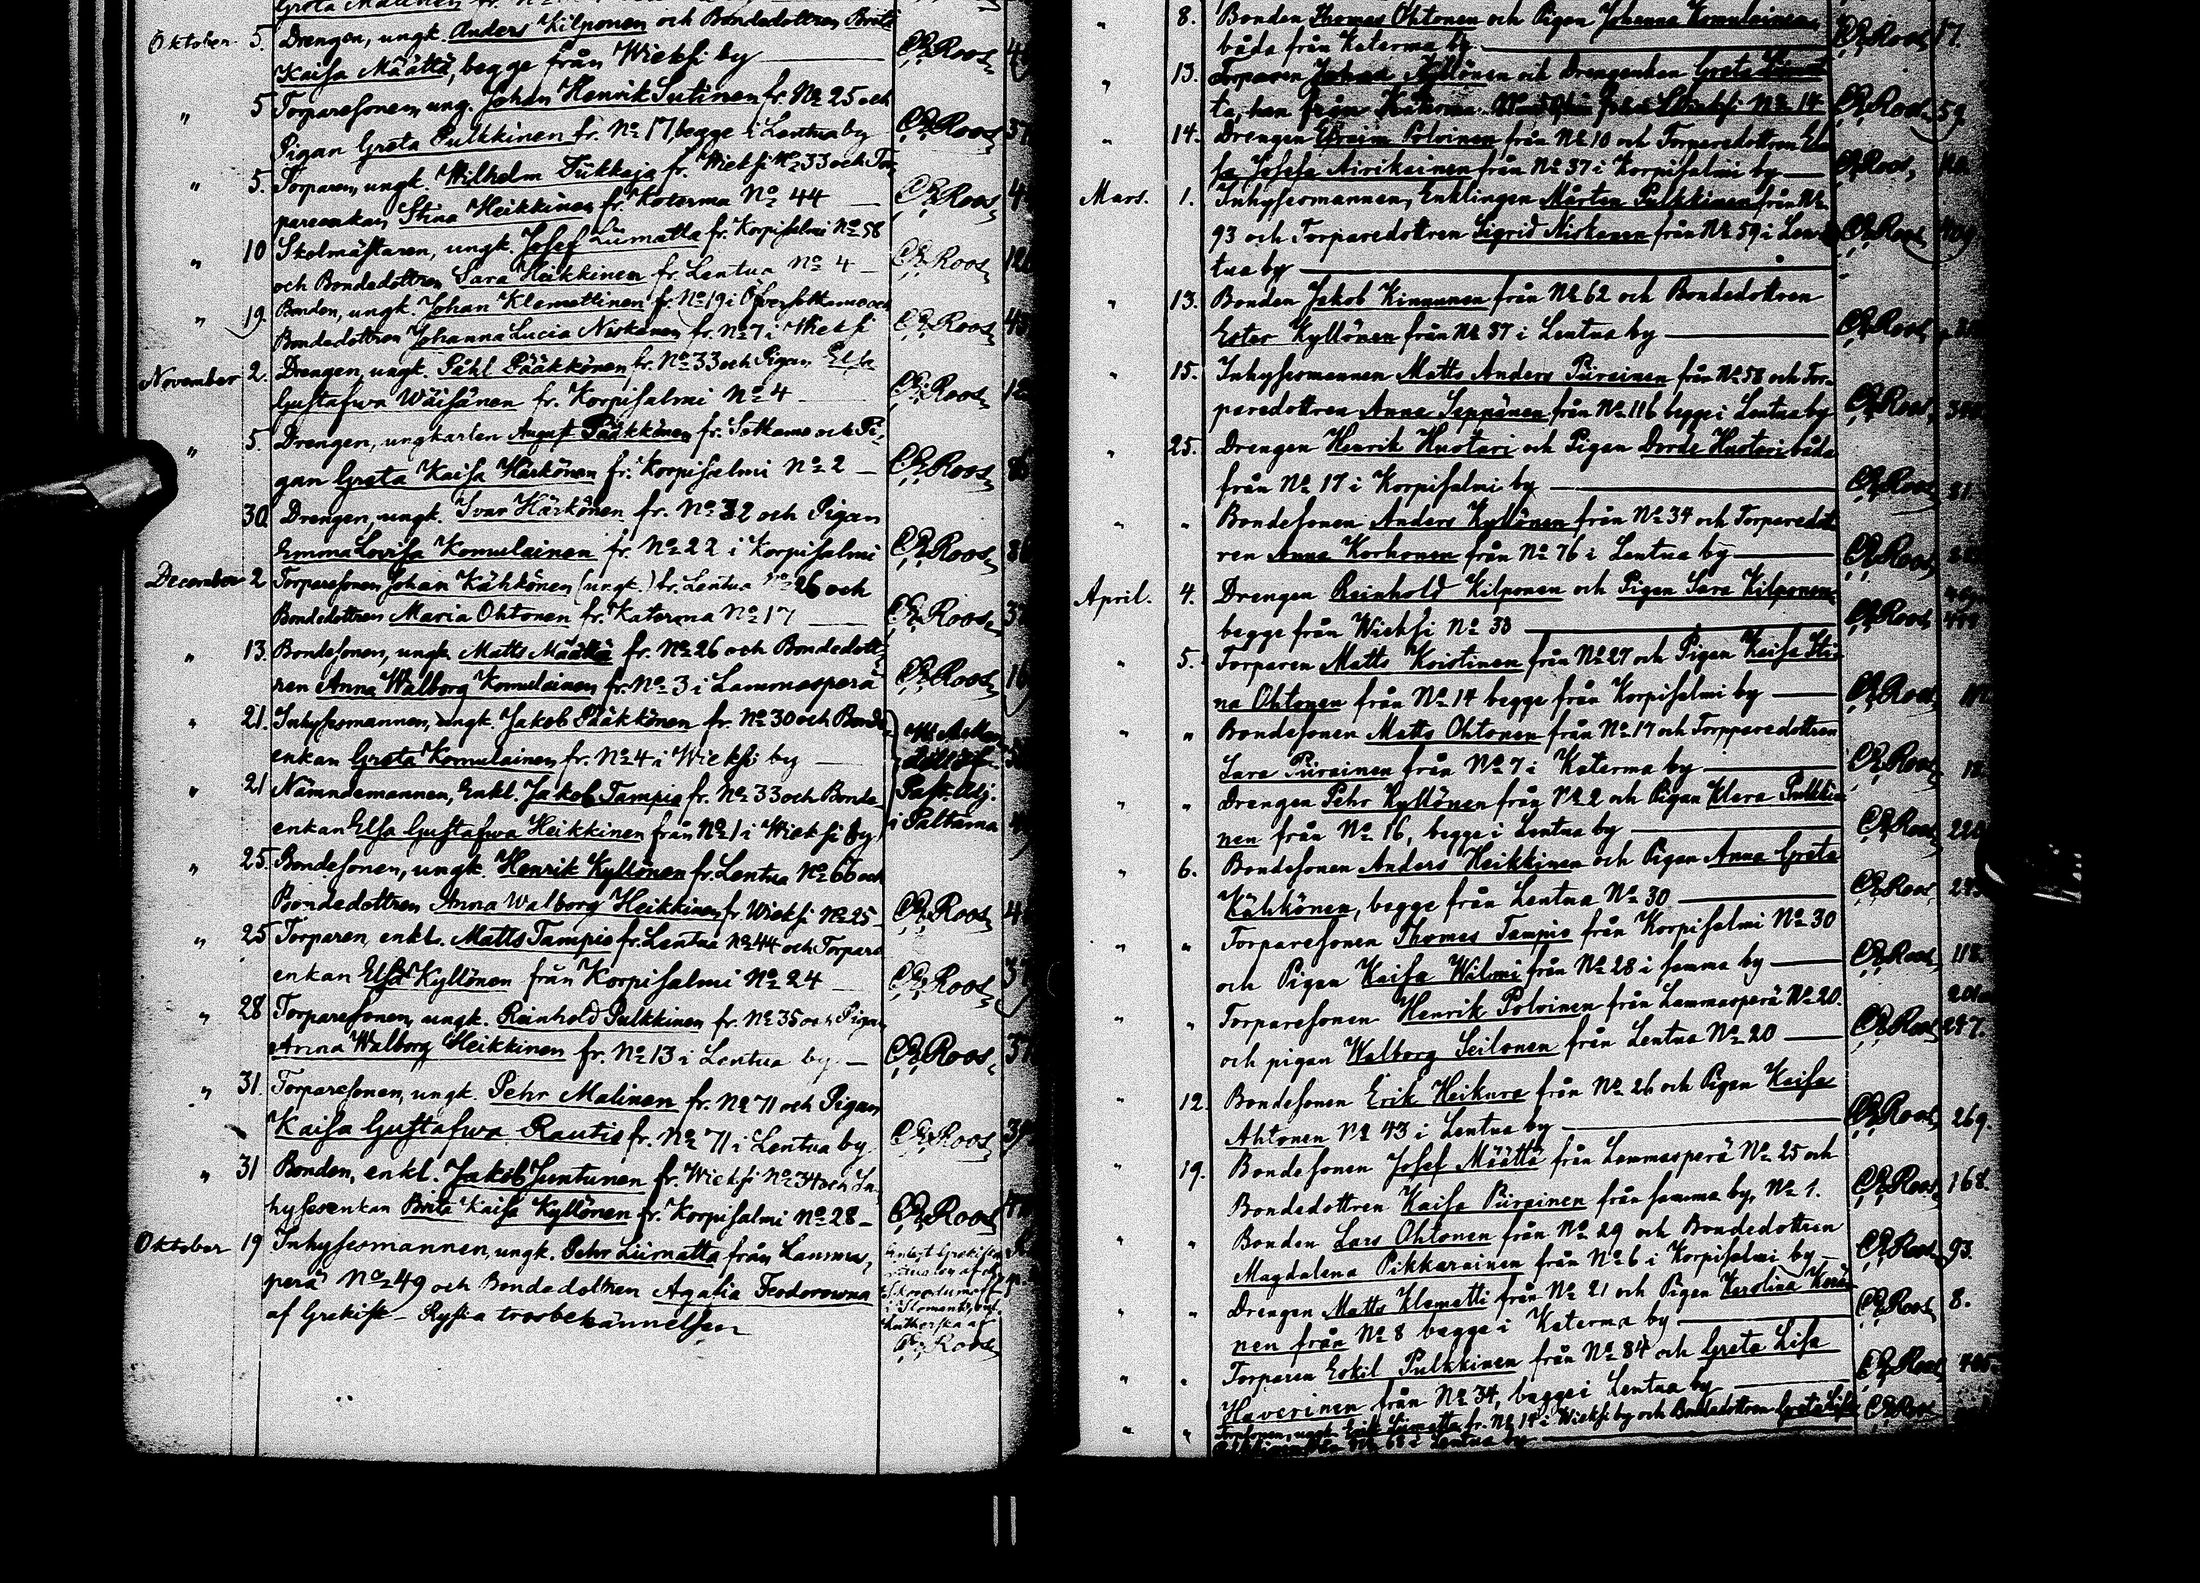 Oktober 5. Drengen, ungk. Anders Kilponen och Bondedottren Brita
Kaisa Määttä, begge från Wieksi by — C. G. Roos
" 5 Torparesonen, ung. Johan Henrik Sutinen fr. No 25 och
Pigan Greta Pulkkinen fr. No 17, begge i Lentua by C. G. Roos
" 5. Torparen, ungk. Wilhelm Tukkaja fr. Wieksi No 33 och Tor-
pareenkan Stina Heikkinen fr. Katerma No 44 — C. G. Roos
" 10 Skolmästaren, ungk. Josef Liimatta fr. Korpisalmi No 58
och Bondedottren Sara Heikkinen fr. Lentua No 4 — C. G. Roos
" 19. Bonden, ungk. Johan Klemettinen fr. No 19 i Öfversotkamo och
Bondedottren Johanna Lucia Niskanen fr. No 7 i Wieksi C. G. Roos
November 2. Drengen, ungk. Påhl Pääkkönen fr. No 33 och Pigan Elsa
Gustafwa Wäisänen fr. Korpisalmi No 4 — C. G. Roos
" 5. Drengen, ungkarlen August Pääkkönen fr. Sotkamo och Pi-
gan Greta Kaisa Härkönen fr. Korpisalmi No 2 — C. G. Roos
30. Drengen, ungk. Ivar Härkönen fr. No 32 och Pigan
Emma Lovisa Komulainen fr. No 22 i Korpisalmi C. G. Roos
December 2 Torparesonen Johan Kähkönen (ungk.) fr. Lentua No 26 och
Bondedottren Maria Ohtonen fr. Katerma No 17 — C. G. Roos
" 13. Bondesonen, ungk. Matts Määttä fr. No 26 och Bondedott-
ren Anna Walborg Komulainen fr. No 3 i Lammasperä C. G. Roos
" 21. Inhysesmannen, ungk. Jakob Pääkkönen fr. No 30 och Bonde-
enkan Greta Komulainen fr. No 4 i Wieksi by —
" 21 Nämndemannen, Enkl. Jakob Tampio fr. No 33 och Bonde- Past. Adj.
enkan Elsa Gustafwa Heikkinen från No 1 i Wieksi by i Paltamo
" 25. Bondesonen, ungk. Henrik Kyllönen fr. Lentua No 66 och
Bondedottren Anna Walborg Heikkinen fr. Wieksi No 25 — C. G. Roos
" 25 Torparen, enkl. Matts Tampio fr. Lentua No 44 och Torpare-
enkan Elsa Kyllönen från Korpisalmi No 24 — C. G. Roos
" 28 Torparesonen, ungk. Reinhold Pulkkinen fr. No 35 och Pigan
Anna Walborg Heikkinen fr. No 13 i Lentua by. — C. G. Roos
" 31. Torparesonen, ungk. Pehr Malinen fr. No 71 och Pigan
Kaisa Gustafwa Rautio fr. No 71 i Lentua by C. G. Roos
" 31 Bonden, enkl. Jakob Juntunen fr. Wieksi No 34 och In-
hysesenkan Brita Kaisa Kyllönen fr. Korpisalmi No 28 — C. G. Roos
Oktober 19 Inhysesmannen, ungk. Pehr Liimatta från Lammas-
perä No 49 och Bondedottren Agafia Feodorowna
af Grekisk-Ryska trosbekännelsen
C. G. Roos
" 8. Bonden Thomas Ohtonen och Pigan Johanna Komulainen,
båda från Katerma by. — C. G. Roos 17.
" 13. Torparen Johan Kyllönen och Drengenkan Greta Liimat-
ta, han från Katerma No 14 C. G. Roos 59
" 14. Drengen Efraim Polvinen från No 10 och Torparedottren El-
sa Josefa Airikainen från No 37 i Korpisalmi by — C. G. Roos
Mars. 1. Inhysesmannen, Enklingen Mårten Pulkkinen från No
93 och Torparedottren Sigrid Niskanen från No 59 i Len- C. G. Roos
tua by —
" 13. Bonden Jakob Kinnunen från No 62 och Bondedottren
Ester Kyllönen från No 37 i Lentua by — C. G. Roos
" 15. Inhysesmannen Matts Anders Piirainen från No 58 och Tor-
paredottren Anna Seppänen från No 116 begge i Lentua by C. G. Roos
" 25. Drengen Henrik Huotari och Pigan Dorde Huotari båda
från No 17 i Korpisalmi by — C. G. Roos 81.
" " Bondesonen Anders Kyllönen från No 34 och Torparedott-
ren Anna Korhonen från No 76 i Lentua by — C. G. Roos
April. 4. Drengen Reinhold Kilponen och Pigan Sara Kilponen
begge från Wieksi No 33 — C. G. Roos
" 5. Torparen Matts Koistinen från No 27 och Pigan Kaisa Sti-
na Ohtonen från No 14 begge från Korpisalmi by — C. G. Roos
" " Bondesonen Matts Ohtonen från No 17 och Torpparedottren
Sara Piirainen från No 7 i Katerma by — C. G. Roos
" " Drengen Pehr Kyllönen från No 2 och Pigan Klara Pulkki-
nen från No 16, begge i Lentua by — C. G. Roos 220
" 6. Bondesonen Anders Heikkinen och Pigan Anna Greta
Kähkönen, begge från Lentua No 30 — C. G. Roos
" " Torparesonen Thomas Tampio från Korpisalmi No 30
och Pigan Kaisa Wilmi från No 28 i samma by — C. G. Roos 118.
" " Torparesonen Henrik Polvinen från Lammasperä No 20.
och pigan Walborg Seilonen från Lentua No 20 — C. G. Roos 247.
" 12. Bondesonen Erik Heikura från No 26 och Pigan Kaisa
Ahtonen No 43 i Lentua by — C. G. Roos 269.
" 19. Bondesonen Josef Määttä från Lammasperä No 25 och
Bondedottren Kaisa Piirainen från samma by, No 1. C. G. Roos 168.
" " Bonden Lars Ohtonen från No 29 och Bondedottren
Magdalena Pikkarainen från No 6 i Korpisalmi by — C. G. Roos 93.
" " Drengen Matts Klemetti från No 21 och Pigan Karolina Korho-
nen från No 8 begge i Katerma by — C. G. Roos 8.
" " Torparen Eskil Pulkkinen från No 84 och Greta Lisa
Haverinen från No 34, begge i Lentua by — C. G. Roos
" " Torpsonen, ungk. Erik Liimatta fr. No 14 i Wieksi by och Bondedottren Greta Lisa C. G. Roos
i Lentua by